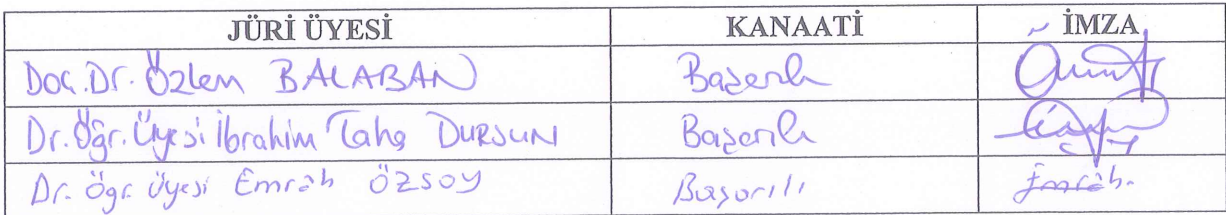 JÜRİ ÜYESİ KANAATİ İMZA
Doç. Dr. Özlem BALABAN Başarılı
Dr. Öğr. Üyesi İbrahim Taha DURSUN Başarılı
Dr. Öğr. Üyesi Emrah ÖZSOY Başarılı Emrah.